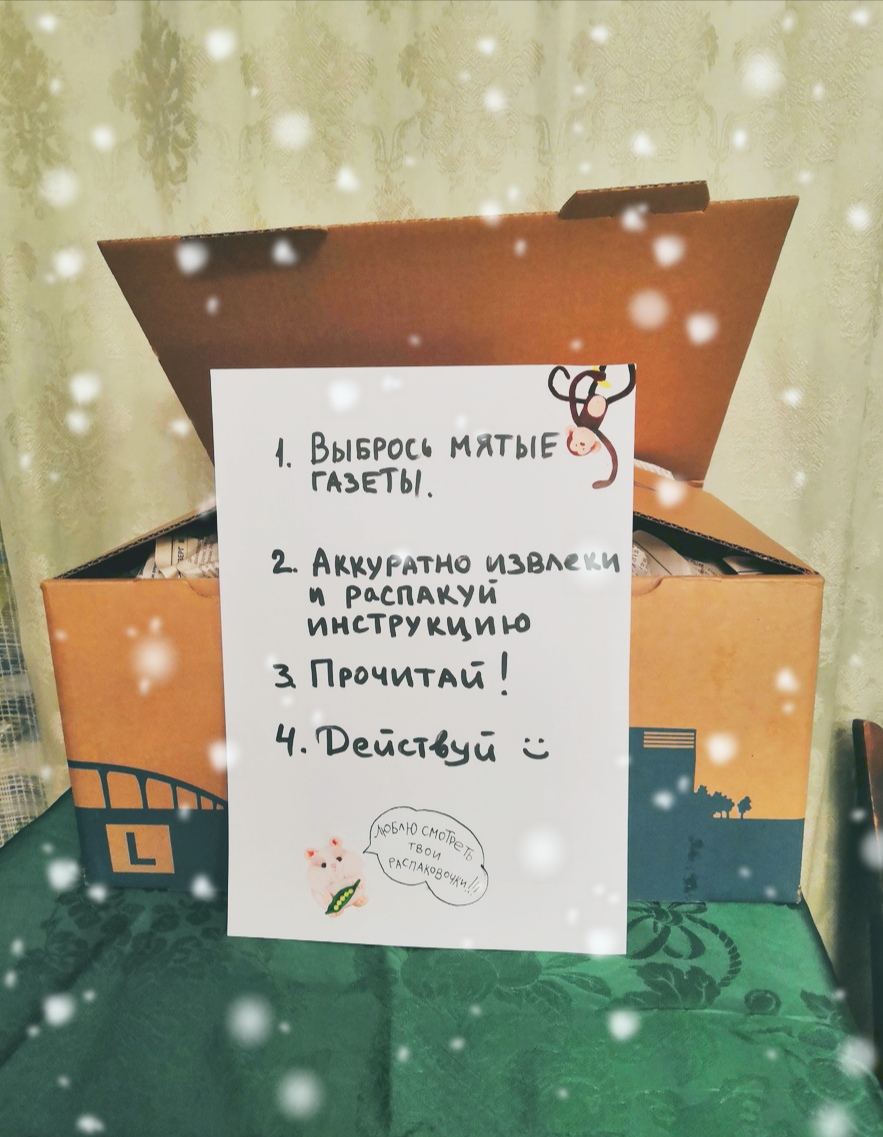 1. Выбрось мятые
газеты.
2. Аккуратно извлеки
и распакуй
инструкцию
3. Прочитай!
4. Действуй :)
Люблю смотреть
твои
распаковочки!!!
L